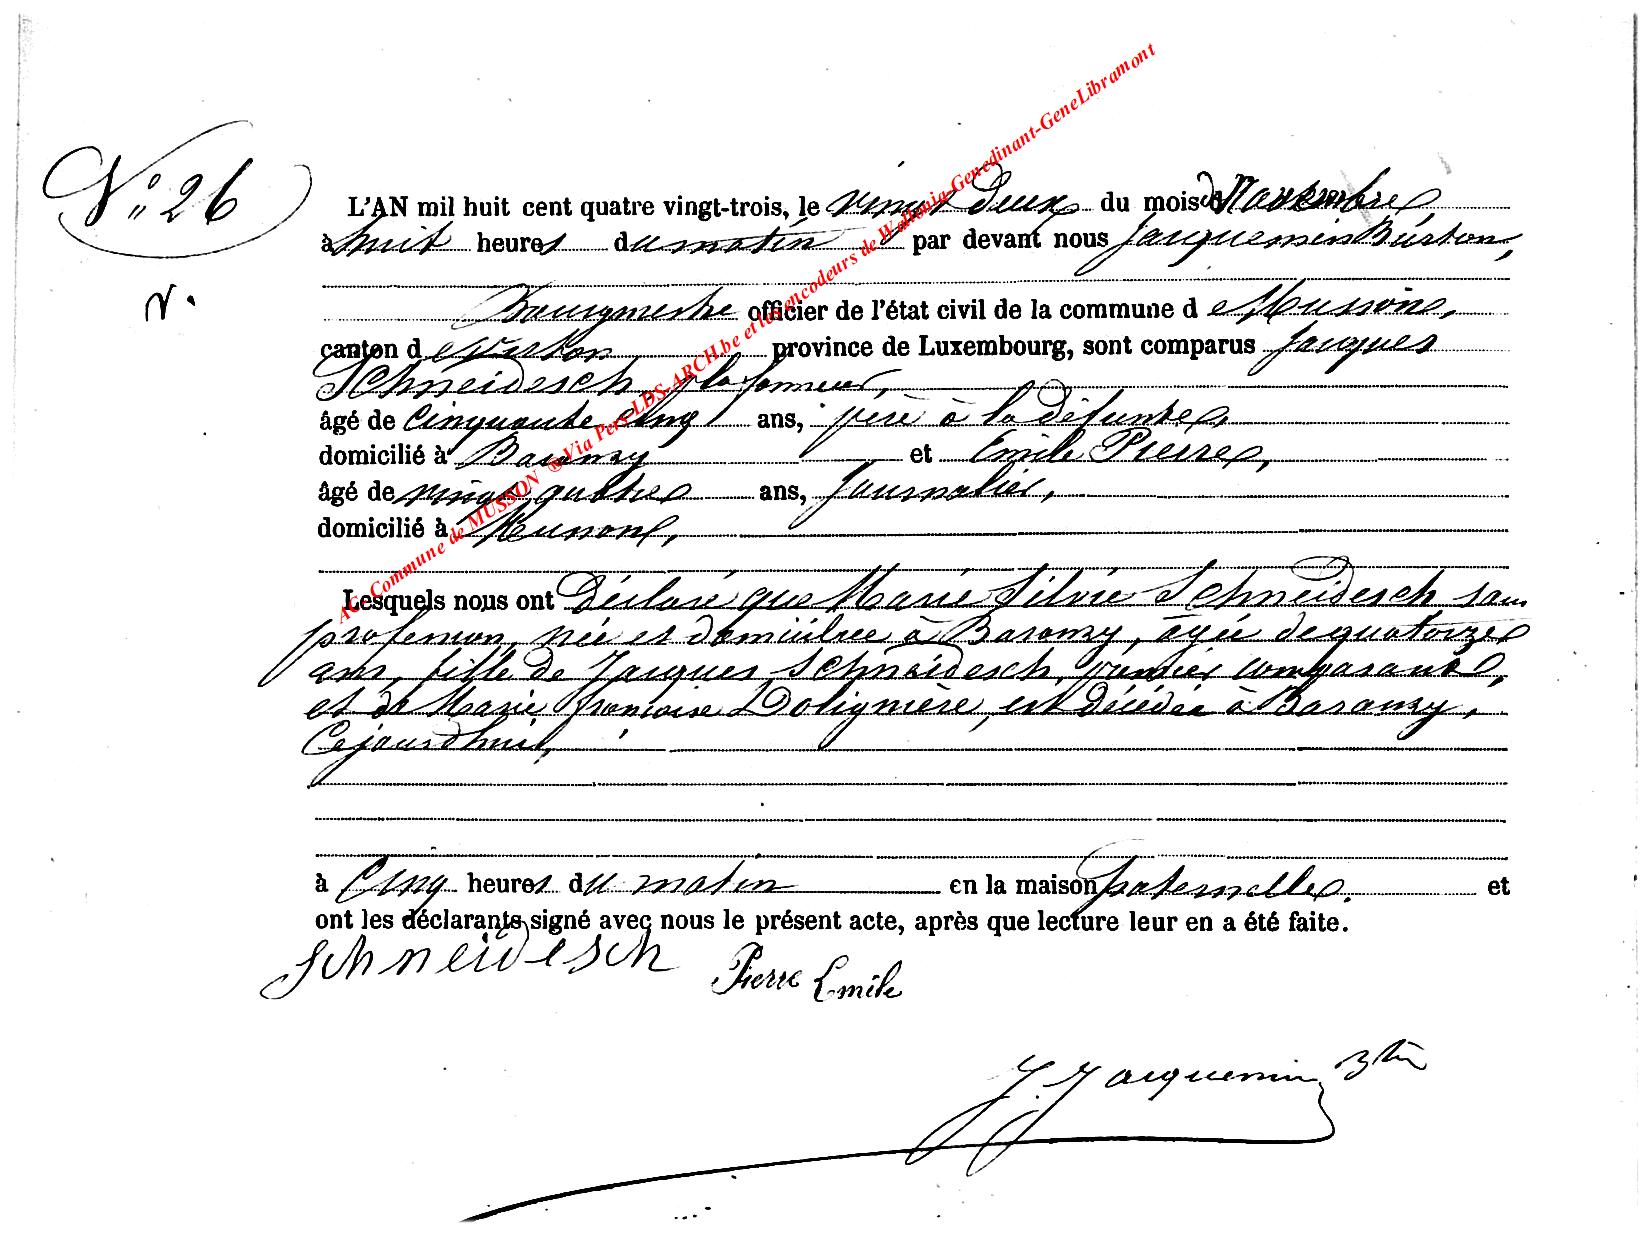 N° 26
L'AN mil huit cent quatre vingt-trois, le vingt deux du mois de Novembre,
à huit heures du matin par devant nous Jacquemin Burton,
Bourgmestre officier de l'état civil de la commune de Musson,
canton de Virton, province de Luxembourg, sont comparus Jacques
Schneidesch, plafonneur,
âgé de cinquante cinq ans, père à la défunte,
domicilié à Baranzy et Emile Pierre,
âgé de vingt quatre ans, journalier,
domicilié à Musson,
Lesquels nous ont déclaré que Marie Silvie Schneidesch sans
profession, née et domiciliée à Baranzy, âgée de quatorze
ans, fille de Jacques Schneidesch, premier comparant,
et de Marie françoise Dolignière, est décédée à Baranzy,
Cejourd'hui,
à Cinq heures du matin en la maison paternelle. et
ont les déclarants signé avec nous le présent acte, après que lecture leur en a été faite.
Schneidesch Pierre Emile
J. Jacquemin
AC Commune de MUSSON ® Via Pers LDS-ARCH.be et les encodeurs de Wallonia-Genedinant-GeneLibramont